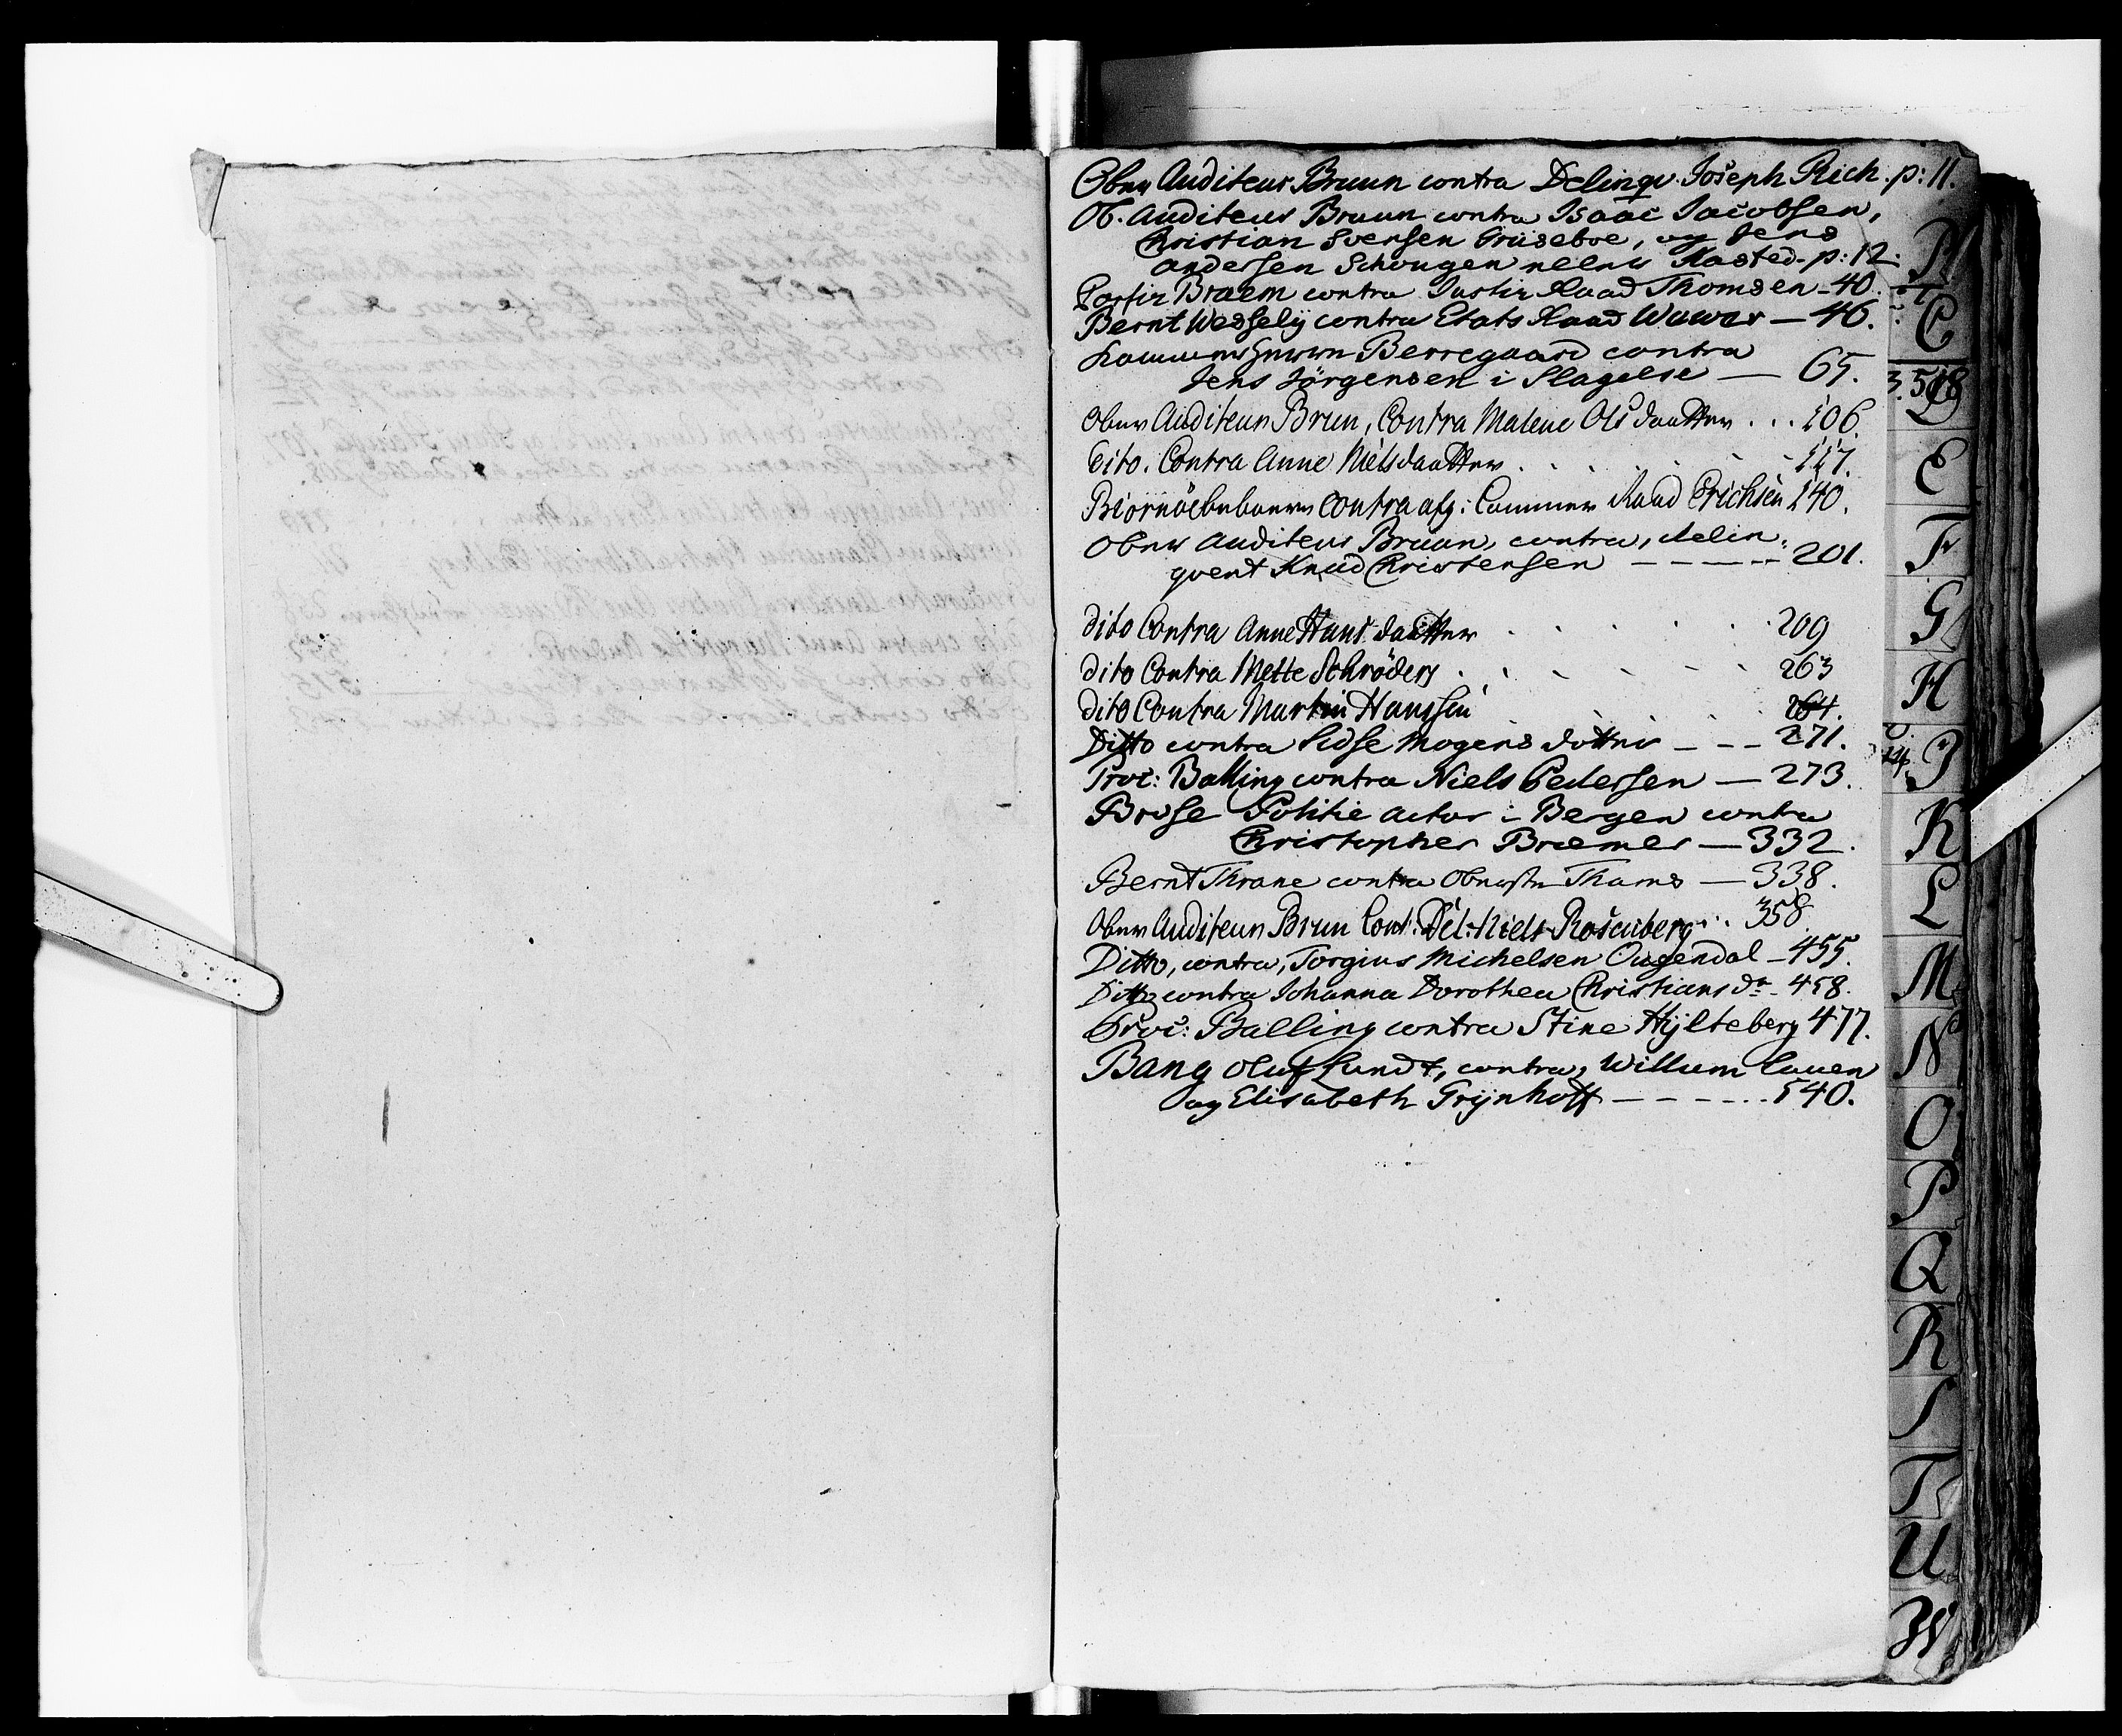 Ober Auditeur Bruun contra Delinqv. Joseph Rich. p: 11.
Ob. Auditeur Bruun contra Isaac Jacobsen,
Christian Svensen Grüseboe, og Jens
Andersen Schougen eller Kasted - p: 12.
Braem contra Justiz Raad Thomsen - 40.
Bernt Wessely contra Etats Raad Wuwer — 46.
Berregaard contra
Jens Jörgensen i Slagelse — 65.
Ober Auditeur Brun, Contra Malene Ols daatter . . . 106.
Dito. Contra Anne Nielsdaatter . . . . . . 117.
Contra afg: Cammer Raad Erichsen 140.
Ober Auditeur Bruun, contra, delin-
qvent Knud Christensen — — — — 201.
dito Contra Anne Hans daatter . . . . . . 209
dito Contra Mette Schröders . . . . . . 263
dito Contra Martin Hanssen . . . . . 264.
Ditto contra Sidse Mogens dotter — — — 271.
Proc: Balling contra Niels Pedersen — 273.
Brose Politie actor i Bergen contra
Christopher Bræmer — 332.
Bernt Thrane contra Oberste Thams — 338.
Ober Auditeur Brun Cont: Del: Niels Rosenberg . . 358
Ditto, contra, Torgius Michelsen Ougendal — 455.
Ditto contra Johanna Dorothea Christians dr - 458.
Proc: Balling contra Stine Hÿlteberg 477.
Bang Oluf Lundt, contra, Willum Cauen
og Elisabeth Grÿnhoff — — — — . . 540.
B
C
3. 508
D
E
F
G
H
J
K
L
M
N
O
P
Q
R
S
T
U
W